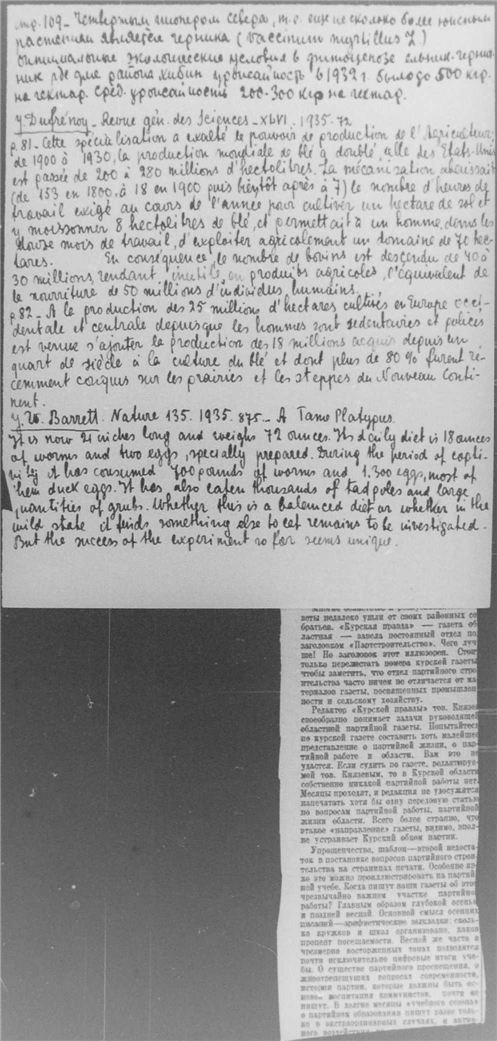 стр. 109 - Четвертым пионером севера, т.е. еще несколько более южным
растением является черника (Vaccinium myrtillus L.)
оптимальные экологические условия в фитоценозе ельник-черни-
ник где для района Хибин урожайность в 1932 г. было до 500 кгр.
на гектар. Сред. урожайность 200-300 кгр на гектар.
J. Dufrénoy - Revue gén. des Sciences - XLVI. 1935. 72
p. 81 - Cette spécialisation a exalté le pouvoir de production de l'Agriculteur;
de 1900 à 1930, la production mondiale de blé a doublé, celle des Etats-Unis
est passée de 200 à 280 millions d'hectolitres. La mécanization abaissait
(de 153 en 1800, à 18 en 1900 puis bientôt après à 7) le nombre d'heures de
travail exigé au cours de l'année pour cultiver un hectare de sol et
y moissonner 8 hectolitres de blé, et permettait à un homme, dans les
douze mois de travail, d'exploiter agricolement un domaine de 70 hec-
tares. En conséquence, le nombre de bovins est descendu de 40 à
30 millions, rendant inutile, en produits agricoles, l'équivalent de
la nourriture de 50 millions d'individus humains.
p. 82 - A la production des 25 millions d'hectares cultivés en Europe occi-
dentale et centrale depuis que les hommes sont sédentaires et policés
est venue s'ajouter la production des 18 millions acquis depuis un
quart de siècle à la culture du blé et dont plus de 80% furent ré-
cemment conquis sur les prairies et les steppes du Nouveau Conti-
nent.
Barrett. Nature 135. 1935. 875 - A Tame Platypus.
It is now 21 inches long and weighs 72 ounces. Its daily diet is 18 ounces
of worms and two eggs, specially prepared. During the period of capti-
vity it has consumed 700 pounds of worms and 1.300 eggs, most of
them duck eggs. It has also eaten thousands of tadpoles and large
quantities of grubs. Whether this is a balanced diet or whether in the
wild state it finds something else to eat remains to be investigated.
But the success of the experiment so far seems unique.
зеты недалеко ушли от своих районных со
братьев. «Курская правда» — газета об
ластная — завела постоянный отдел под
заголовком «Партстроительство». Чего луч
ше! Но заголовок этот иллюзорен. Стоит
только перелистать номера курской газеты
чтобы заметить, что отдел партийного стро
ительства часто ничем не отличается от ма
териалов газеты, посвященных промышлен
ности и сельскому хозяйству.
Редактор «Курской правды» тов. Князев
своеобразно понимает задачи руководящей
областной партийной газеты. Попытайтесь
по курской газете составить хоть малейшее
представление о партийной жизни, о пар
тийной работе в области. Вам это не
удастся. Если судить по газете, редактируе
мой тов. Князевым, то в Курской области
собственно никакой партийной работы нет.
Месяцы проходят, и редакция не удосужится
напечатать хотя бы одну передовую статью
по вопросам партийной работы, партийной
жизни области. Всего более странно, что
этакое «направление» газеты, видимо, впол-
не устраивает Курский обком партии.
Упрощенчество, шаблон—второй недоста-
ток в постановке вопросов партийного строи-
тельства на страницах печати. Особенно яр-
ко это можно проиллюстрировать на партий-
ной учебе. Когда пишут наши газеты об этом
чрезвычайно важном участке партийной
работы? Главным образом глубокой осенью
и поздней весной. Основной смысл осенних
писаний—арифметические выкладки: сколь-
ко кружков и школ организовано, каков
процент посещаемости. Весной же часто в
чрезмерно восторженных тонах подводятся
почти исключительно цифровые итоги уче-
бы. О существе партийного просвещения, о
животрепещущих вопросах современности,
истории партии, которые должны быть ос-
новой воспитания коммунистов, почти не
пишут. В долгие месяцы «учебного сезона»
о партийном образовании пишут разве толь-
ко в экстраординарных случаях, и